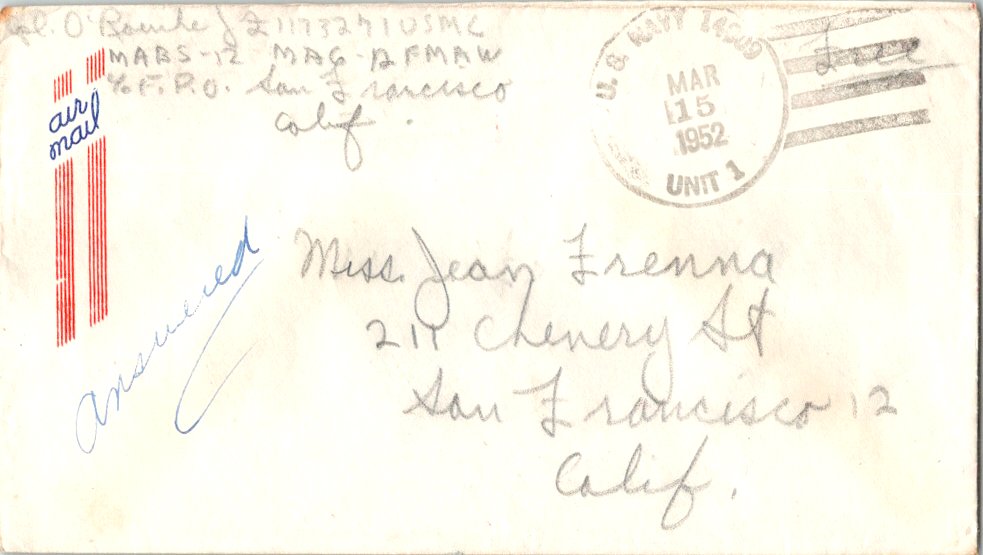 Cpl. O'Rourke J F 1173271 USMC
MABS-12 MAG-12 FMAW
℅ F.P.O. San Francisco
Calif.
air
mail
U.S. NAVY 14009
MAR
15
1952
UNIT 1
Free
answered
Miss. Jean Frenna
211 Chenery St
San Francisco 12
Calif.